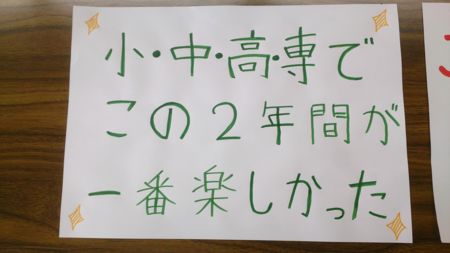 小・中・高・専で
この2年間が
一番楽しかった